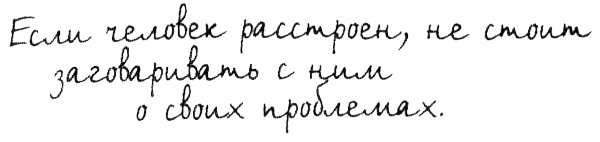 Если человек расстроен, не стоит
заговаривать с ним
о своих проблемах.